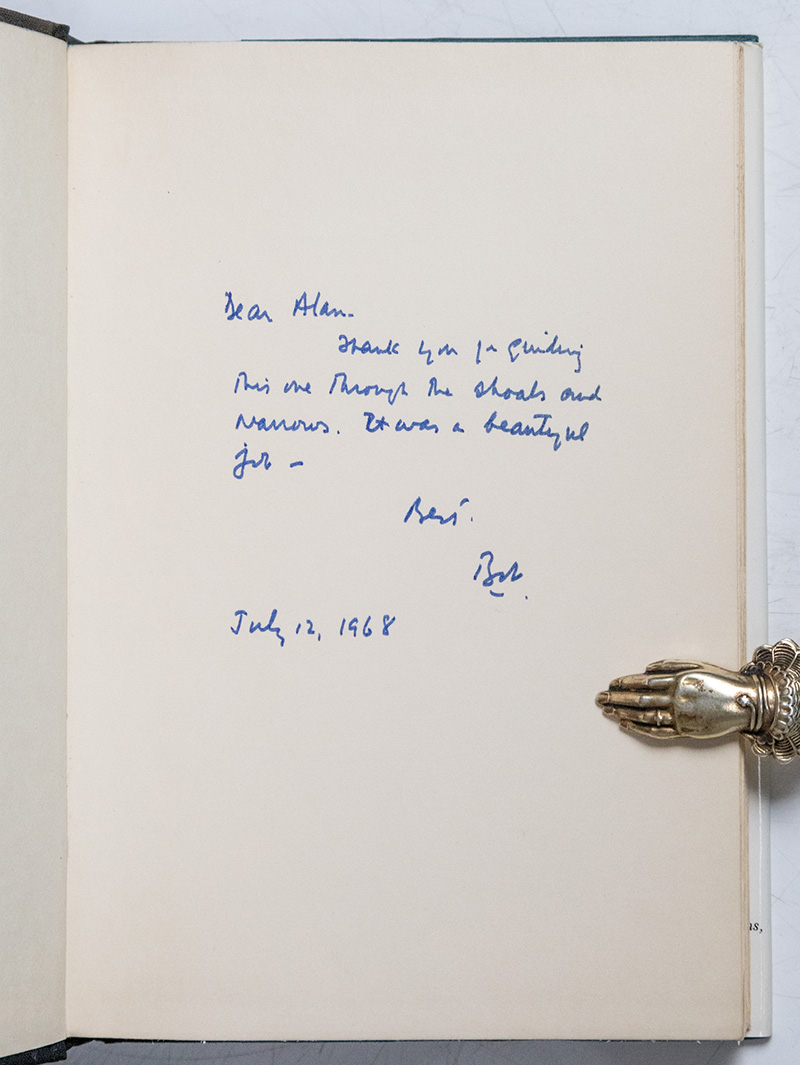 Dear Alan.
Thank you for guiding
this one through the shoals and
narrows. It was a beautiful
job –
Best.
Bob.
July 12, 1968
ns,